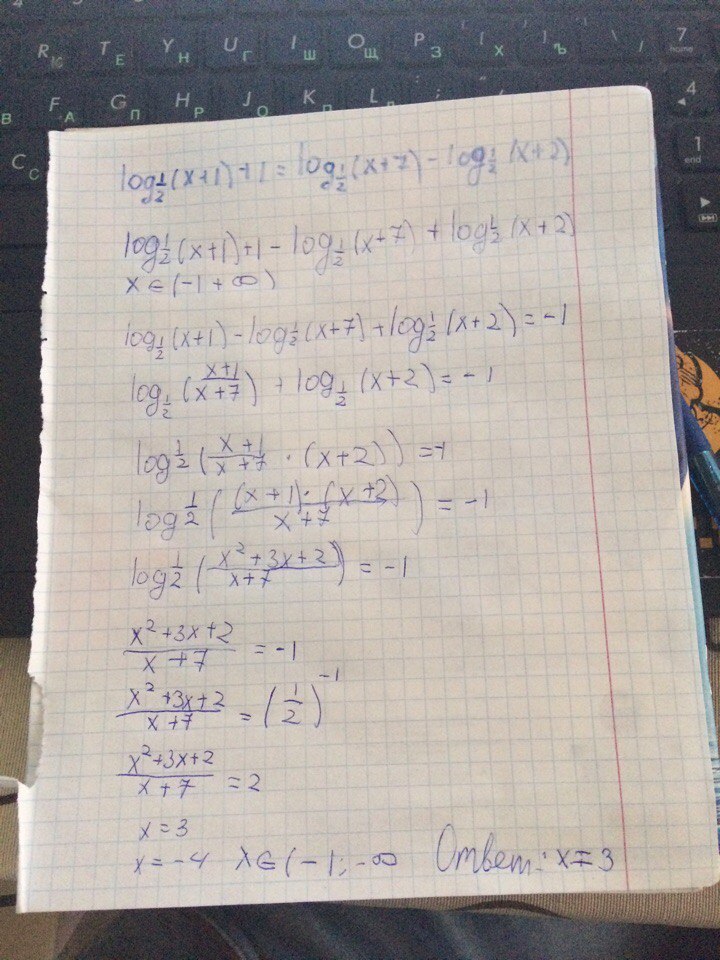 R T Y U I O P { }
К Е Н Г Ш Щ З Х Ъ \ /
7 home
F G H J K L
В А П Р О Л
4
C С
1 end
log 1/2 (x+1)+1 = log 1/2 (x+7) - log 1/2 (x+2)
log 1/2 (x+1)+1 - log 1/2 (x+7) + log 1/2 (x+2)
x ∈ (-1 + ∞)
log 1/2 (x+1) - log 1/2 (x+7) + log 1/2 (x+2) = -1
log 1/2 (x+1/x+7) + log 1/2 (x+2) = -1
log 1/2 (x+1/x+7 · (x+2)) = -1
log 1/2 ((x+1)·(x+2)/x+7) = -1
log 1/2 (x²+3x+2/x+7) = -1
x²+3x+2/x+7 = -1
x²+3x+2/x+7 = (1/2)⁻¹
x²+3x+2/x+7 = 2
x = 3
x = -4 x ∈ (-1; -∞ Ответ: x = 3